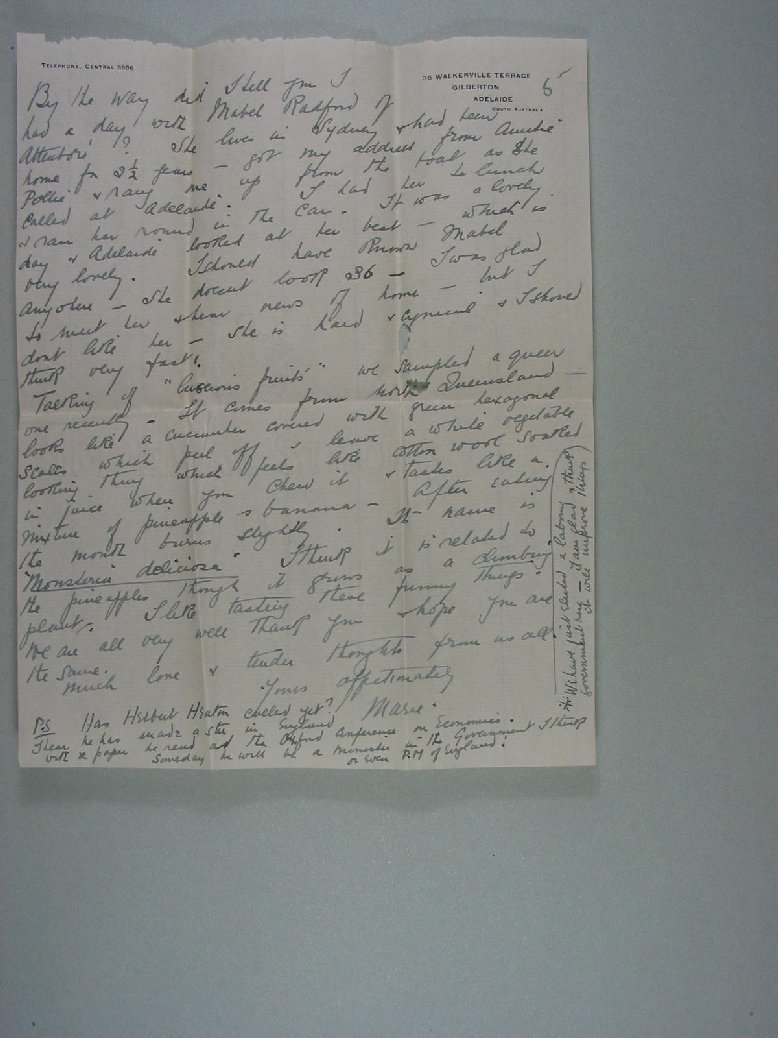 TELEPHONE, CENTRAL
WALKERVILLE TERRACE
GILBERTON
ADELAIDE
SOUTH AUSTRALIA
5
By the way did I tell you I
had a day with Mabel Radford of
Attenboro'? She lives in Sydney & had been
home for 2½ years – got my address from Auntie
Pollie & rang me up from the boat as she
called at Adelaide. I had her to lunch
& ran her round in the car. It was a lovely
day & Adelaide looked at her best – which is
very lovely. I should have known Mabel
anywhere – she doesent look 36 – I was glad
to meet her & hear news of home – but I
dont like her – she is hard & cynical & I should
think very fast!
Talking of "luscious fruits" we sampled a queer
one recently – It comes from North Queensland –
looks like a cucumber covered with green hexagonal
scales which peel off & leave a white vegetable
looking thing which feels like cotton wool soaked
in juice when you chew it & tastes like a
mixture of pineapple & banana – After eating
the mouth burns slightly. It name is
"Monsteria deliciosa". I think it is related to
the pineapples though it grows as a climbing
plant. I like tasting these funny things.
We are all very well thank you & hope you are
the same.
Much love & tender thoughts from us all.
Yours affectionately
Marie.
P.S Has Herbert Heaton called yet?
I hear he has made a stir in England
with a paper he read at the Oxford Conference on Economics.
Someday he will be a minister in the Government I think
or even P.M of England!
We have just elected a labour
government here – I am glad & think
it will improve things